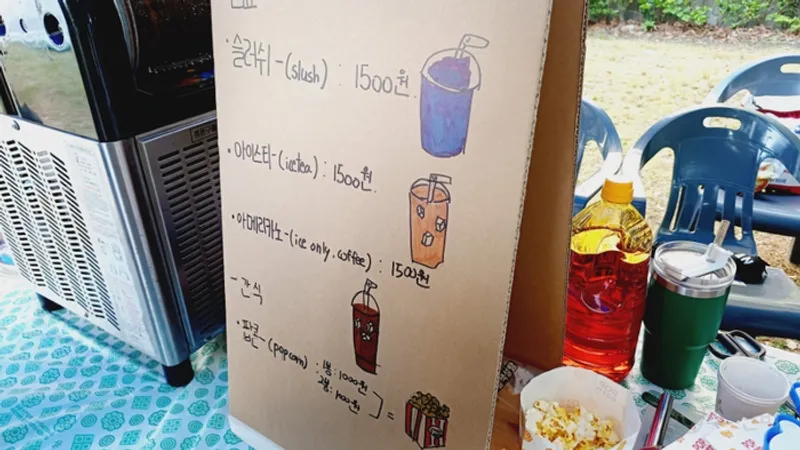 ·슬러쉬-(slush) : 1500원
·아이스티-(icetea) : 1500원
·아메리카노-(ice only, coffee) : 1500원
- 간식
·팝콘-(popcorn) : 1봉: 1000원